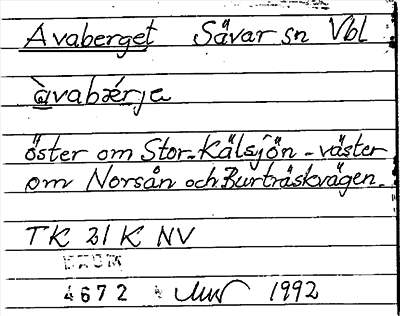 Avaberget Sävar sn Vbl
àvabǽrja
öster om Stor-Kälsjön - väster
om Norsån och Burträskvägen.
TK 21 K NV
4672 1992